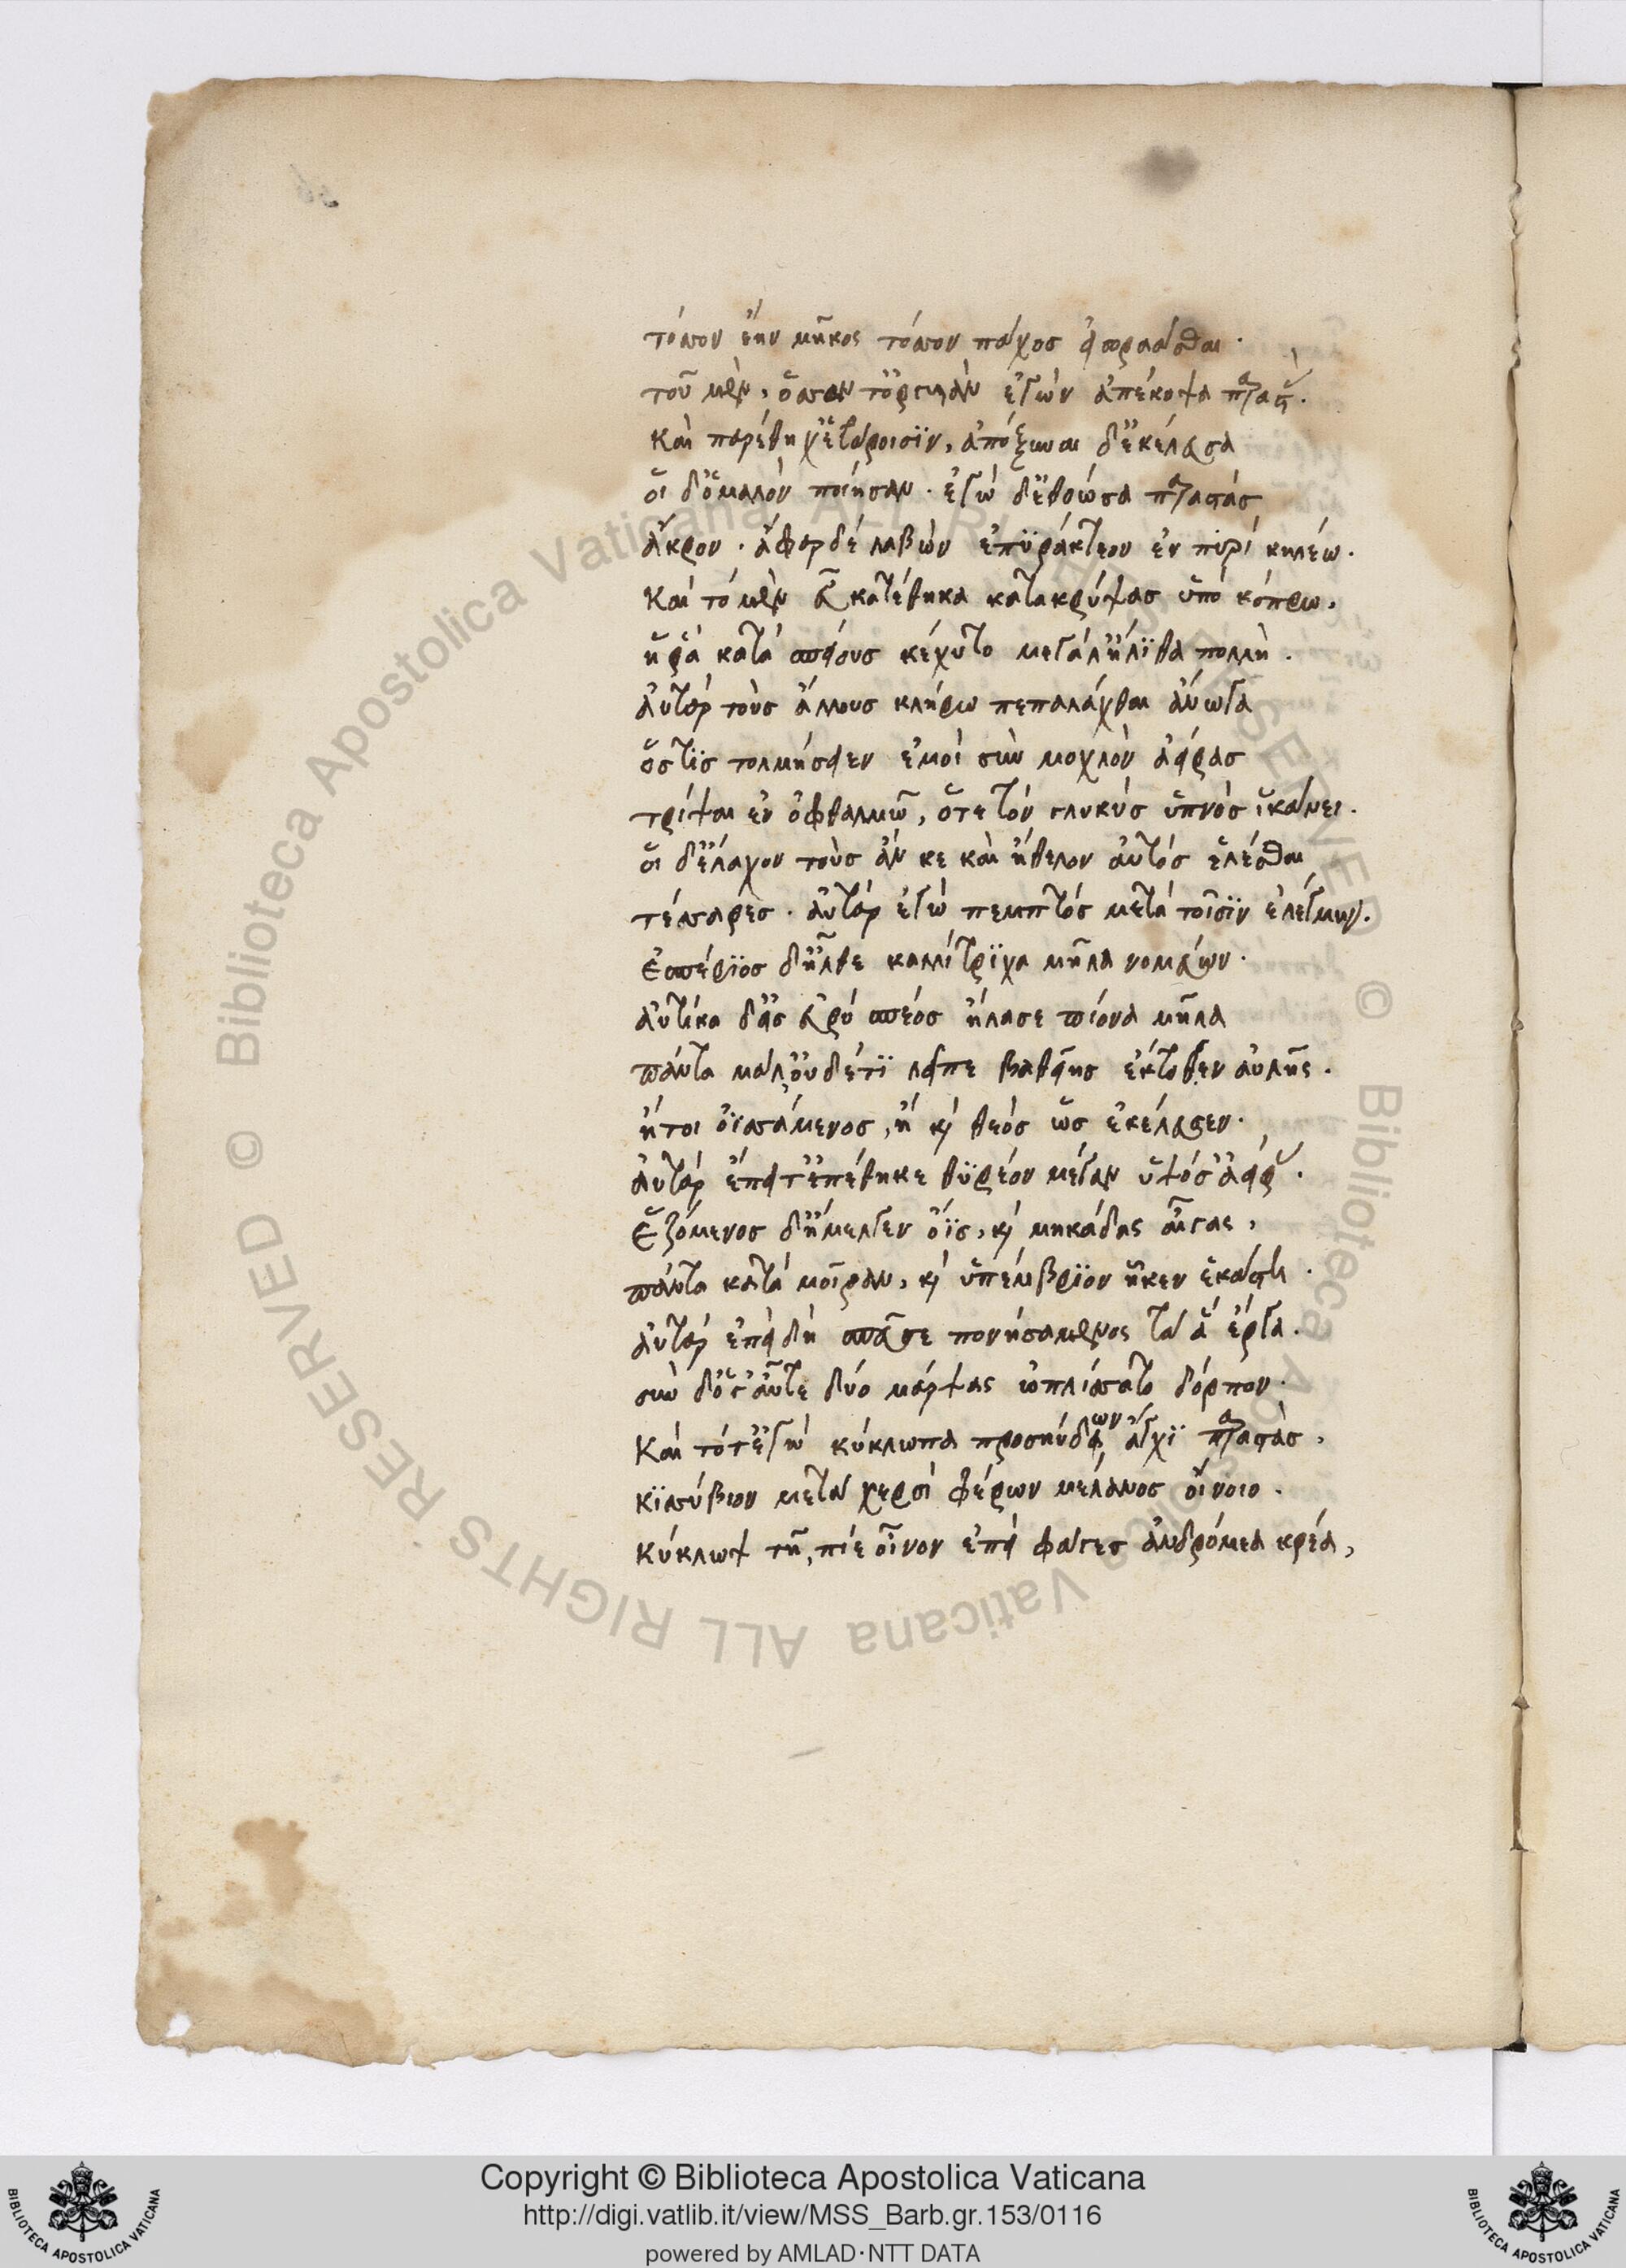 τόσσον ἔην μῆκος τόσσον πάχος εἰσοράασθαι·
τοῦ μὲν, ὅσσον τ' ὄργυιαν ἐγὼν ἀπέκοψα παραστάς.
καὶ παρέθηχ' ἑτάροισϊν, ἀποξῦναι δ' ἐκέλευσα
οἳ δ' ὁμαλὸν ποίησαν· ἐγὼ δ' ἐθόωσα παραστάς
ἄκρον· ἄφαρ δὲ λαβὼν ἐπϋράκτεον ἐν πϋρὶ κηλέω.
καὶ τὸ μὲν εὖ κατέθηκα κατακρύψας ὑπὸ κόπρω,
ἥ ῥα κατὰ σπείους κέχυτο μεγάλ' ἤλϊθα πολλή.
αὐτὰρ τοὺς ἄλλους κλήρω πεπαλάχθαι ἄνωγα
ὅς τϊς τολμήσειεν ἐμοὶ σὺν μοχλὸν ἀείρας
τρίψαι ἐν ὀφθαλμῶ, ὅτε τὸν γλυκὺς ὕπνος ἱκάνει.
οἳ δ' ἔλαχον τοὺς ἄν κε καὶ ἤθελον αὐτὸς ἑλέσθαι
τέσσαρες· αὐτὰρ ἐγὼ πεμπτὸς μετὰ τοῖσϊν ἐλέγμην.
ἑσπέρϊος δ' ἦλθε καλλίτρϊχα μῆλα νομεύων·
αὐτίκα δ' εἰς εὐρὺ σπέος ἤλασε πίονα μῆλα
πάντα μάλ', οὐδέ τϊ λεῖπε βαθείης ἔκτοθεν αὐλῆς.
ἤτοι ὀϊσσάμενος, ἢ καὶ θεὸς ὣς ἐκέλευσεν·
αὐτὰρ ἔπειτ' ἐπέθηκε θϋρεὸν μέγαν ὑψόσ' ἀείρας.
ἑζόμενος δ' ἤμελγεν ὄϊς, καὶ μηκάδας αἶγας,
πάντα κατὰ μοῖραν, καὶ ὑπ' ἔμβρϊον ἧκεν ἑκάστη.
αὐτὰρ ἐπειδὴ σπεῦσε πονησάμενος τὰ ἃ ἔργα.
σὺν δ' ὅγ' αὖτε δύο μάρψας ὡπλίσσατο δόρπον·
καὶ τότ' ἐγὼ κύκλωπα προσηύδων ἄγχϊ παραστὰς,
κϊσσύβιον μετὰ χερσὶ φέρων μέλανος οἴνοιο.
κύκλωψ τῆ, πίε οἶνον ἐπεὶ φάγες ἀνδρόμεα κρέα,
Copyright © Biblioteca Apostolica Vaticana
http://digi.vatlib.it/view/MSS_Barb.gr.153/0116
powered by AMLAD·NTT DATA